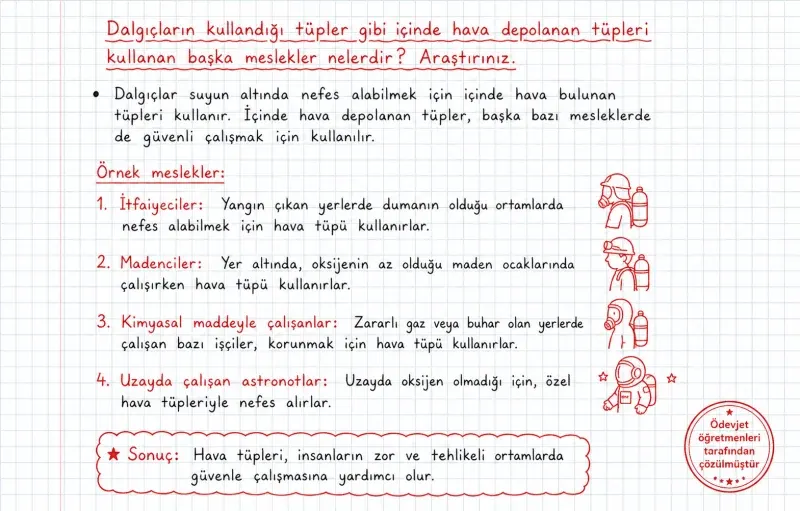 Dalgıçların kullandığı tüpler gibi içinde hava depolanan tüpleri
kullanan başka meslekler nelerdir? Araştırınız.
• Dalgıçlar suyun altında nefes alabilmek için içinde hava bulunan
tüpleri kullanır. İçinde hava depolanan tüpler, başka bazı mesleklerde
de güvenli çalışmak için kullanılır.
Örnek meslekler:
1. İtfaiyeciler: Yangın çıkan yerlerde dumanın olduğu ortamlarda
nefes alabilmek için hava tüpü kullanırlar.
2. Madenciler: Yer altında, oksijenin az olduğu maden ocaklarında
çalışırken hava tüpü kullanırlar.
3. Kimyasal maddeyle çalışanlar: Zararlı gaz veya buhar olan yerlerde
çalışan bazı işçiler, korunmak için hava tüpü kullanırlar.
4. Uzayda çalışan astronotlar: Uzayda oksijen olmadığı için, özel
hava tüpleriyle nefes alırlar.
★ Sonuç: Hava tüpleri, insanların zor ve tehlikeli ortamlarda
güvenle çalışmasına yardımcı olur.
Ödevjet
öğretmenleri
tarafından
çözülmüştür